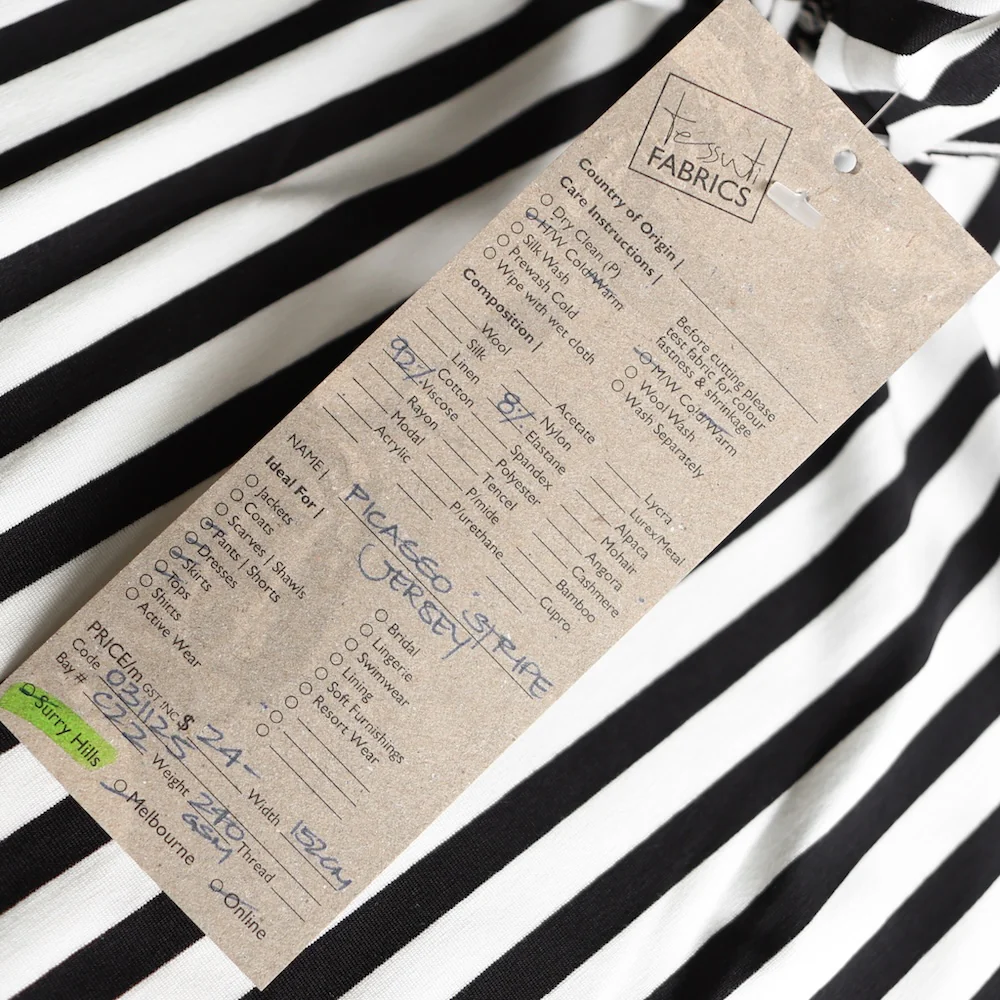 tessuti
FABRICS
Country of Origin |
Care Instructions |
Dry Clean (P)
H/W Cold/Warm
Silk Wash
Prewash Cold
Wipe with wet cloth
Before cutting please
test fabric for colour
fastness & shrinkage
M/W Cold/Warm
Wool Wash
Wash Separately
Composition |
Wool
Silk
Linen
Cotton
92% Viscose
Rayon
Modal
Acrylic
Acetate
Nylon
8% Elastane
Spandex
Polyester
Tencel
P/mide
P/urethane
Lycra
Lurex/Metal
Alpaca
Mohair
Angora
Cashmere
Bamboo
Cupro
NAME | PICASSO STRIPE
JERSEY
Ideal For |
Jackets
Coats
Scarves | Shawls
Pants | Shorts
Dresses
Skirts
Tops
Shirts
Active Wear
Bridal
Lingerie
Swimwear
Lining
Soft Furnishings
Resort Wear
PRICE/m GST INC $ 24-
Code 031125 Width 152cm
Bay # C22 Weight 240 GSM Thread
Surry Hills
Melbourne
Online